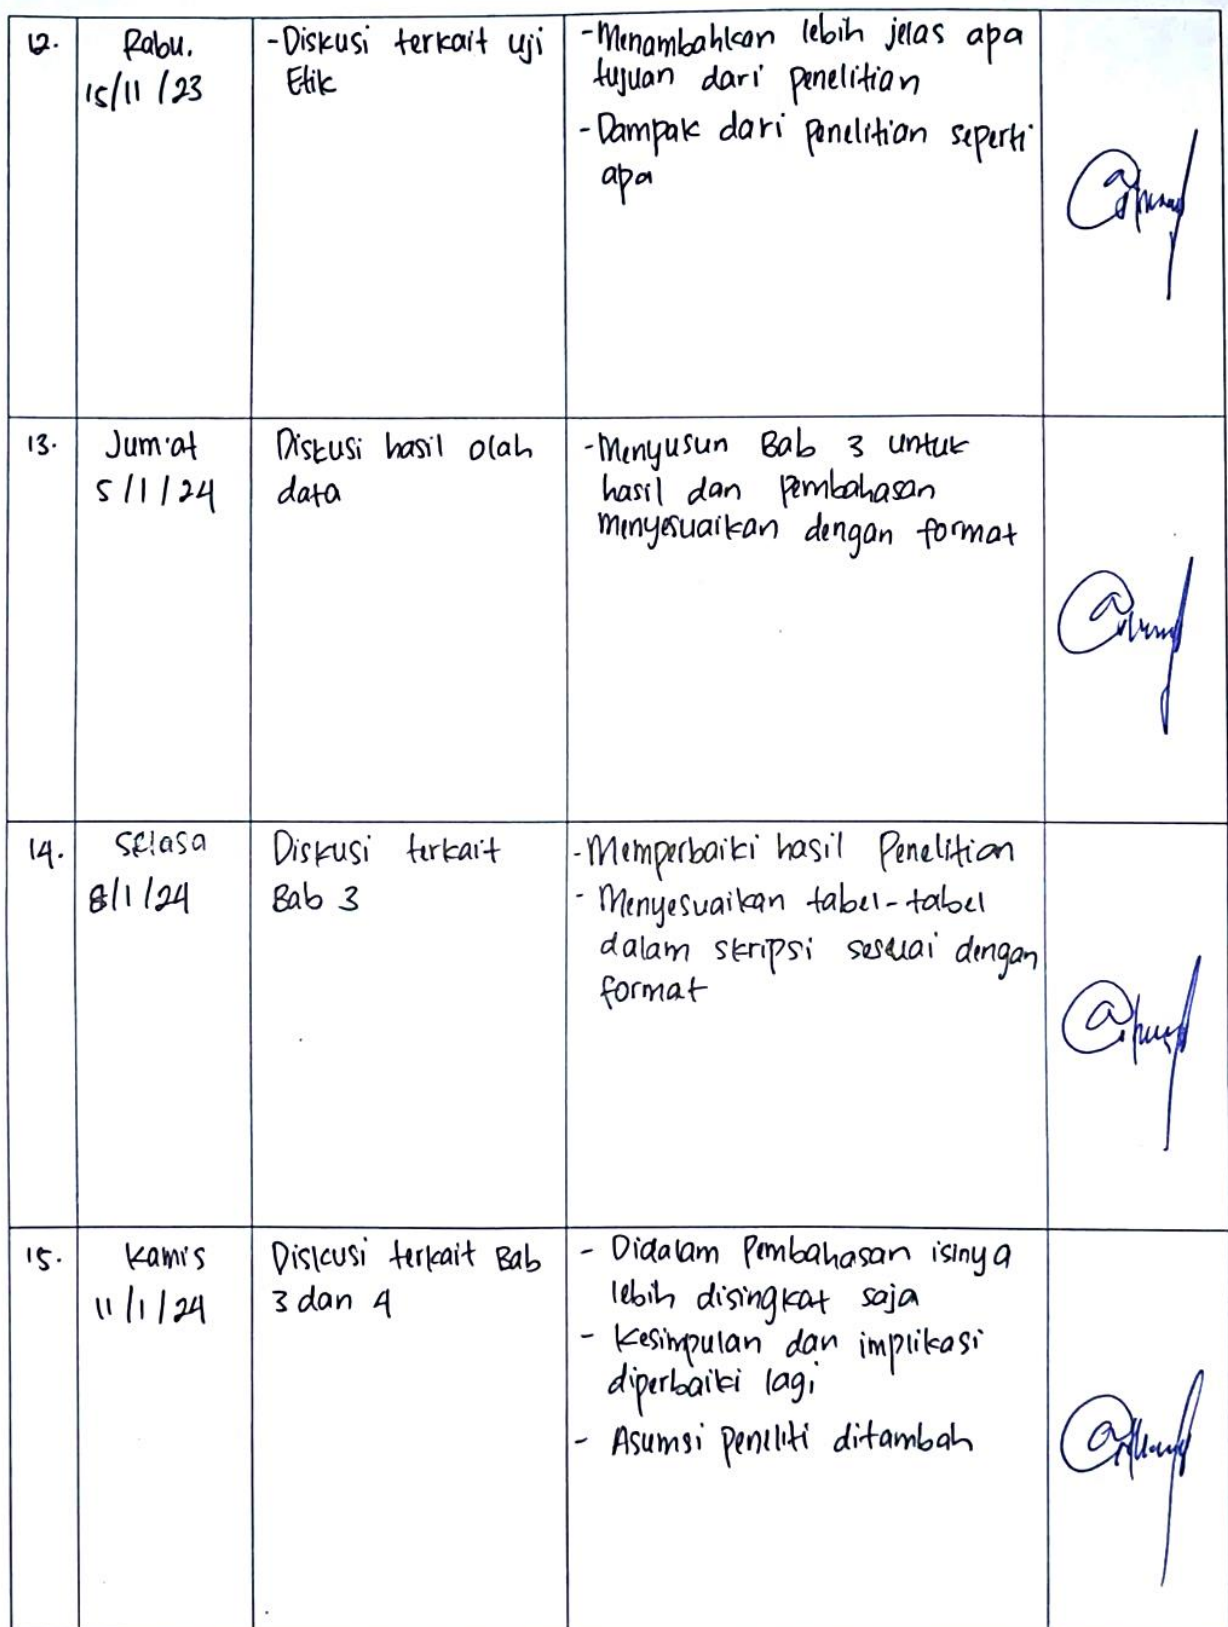 12.
Rabu.
15/11/23
-Diskusi terkait uji
Etik
-Menambahkan lebih jelas apa
tujuan dari penelitian
-Dampak dari penelitian seperti
apa
13.
Jum'at
5/1/24
Diskusi hasil olah
data
-Menyusun Bab 3 untuk
hasil dan pembahasan
menyesuaikan dengan format
14.
Selasa
8/1/24
Diskusi terkait
Bab 3
-Memperbaiki hasil Penelitian
- Menyesuaikan tabel-tabel
dalam skripsi sesuai dengan
format
15.
Kamis
11/1/24
Diskusi terkait Bab
3 dan 4
- Didalam Pembahasan isinya
lebih disingkat saja
- Kesimpulan dan implikasi
diperbaiki lagi
- Asumsi peneliti ditambah